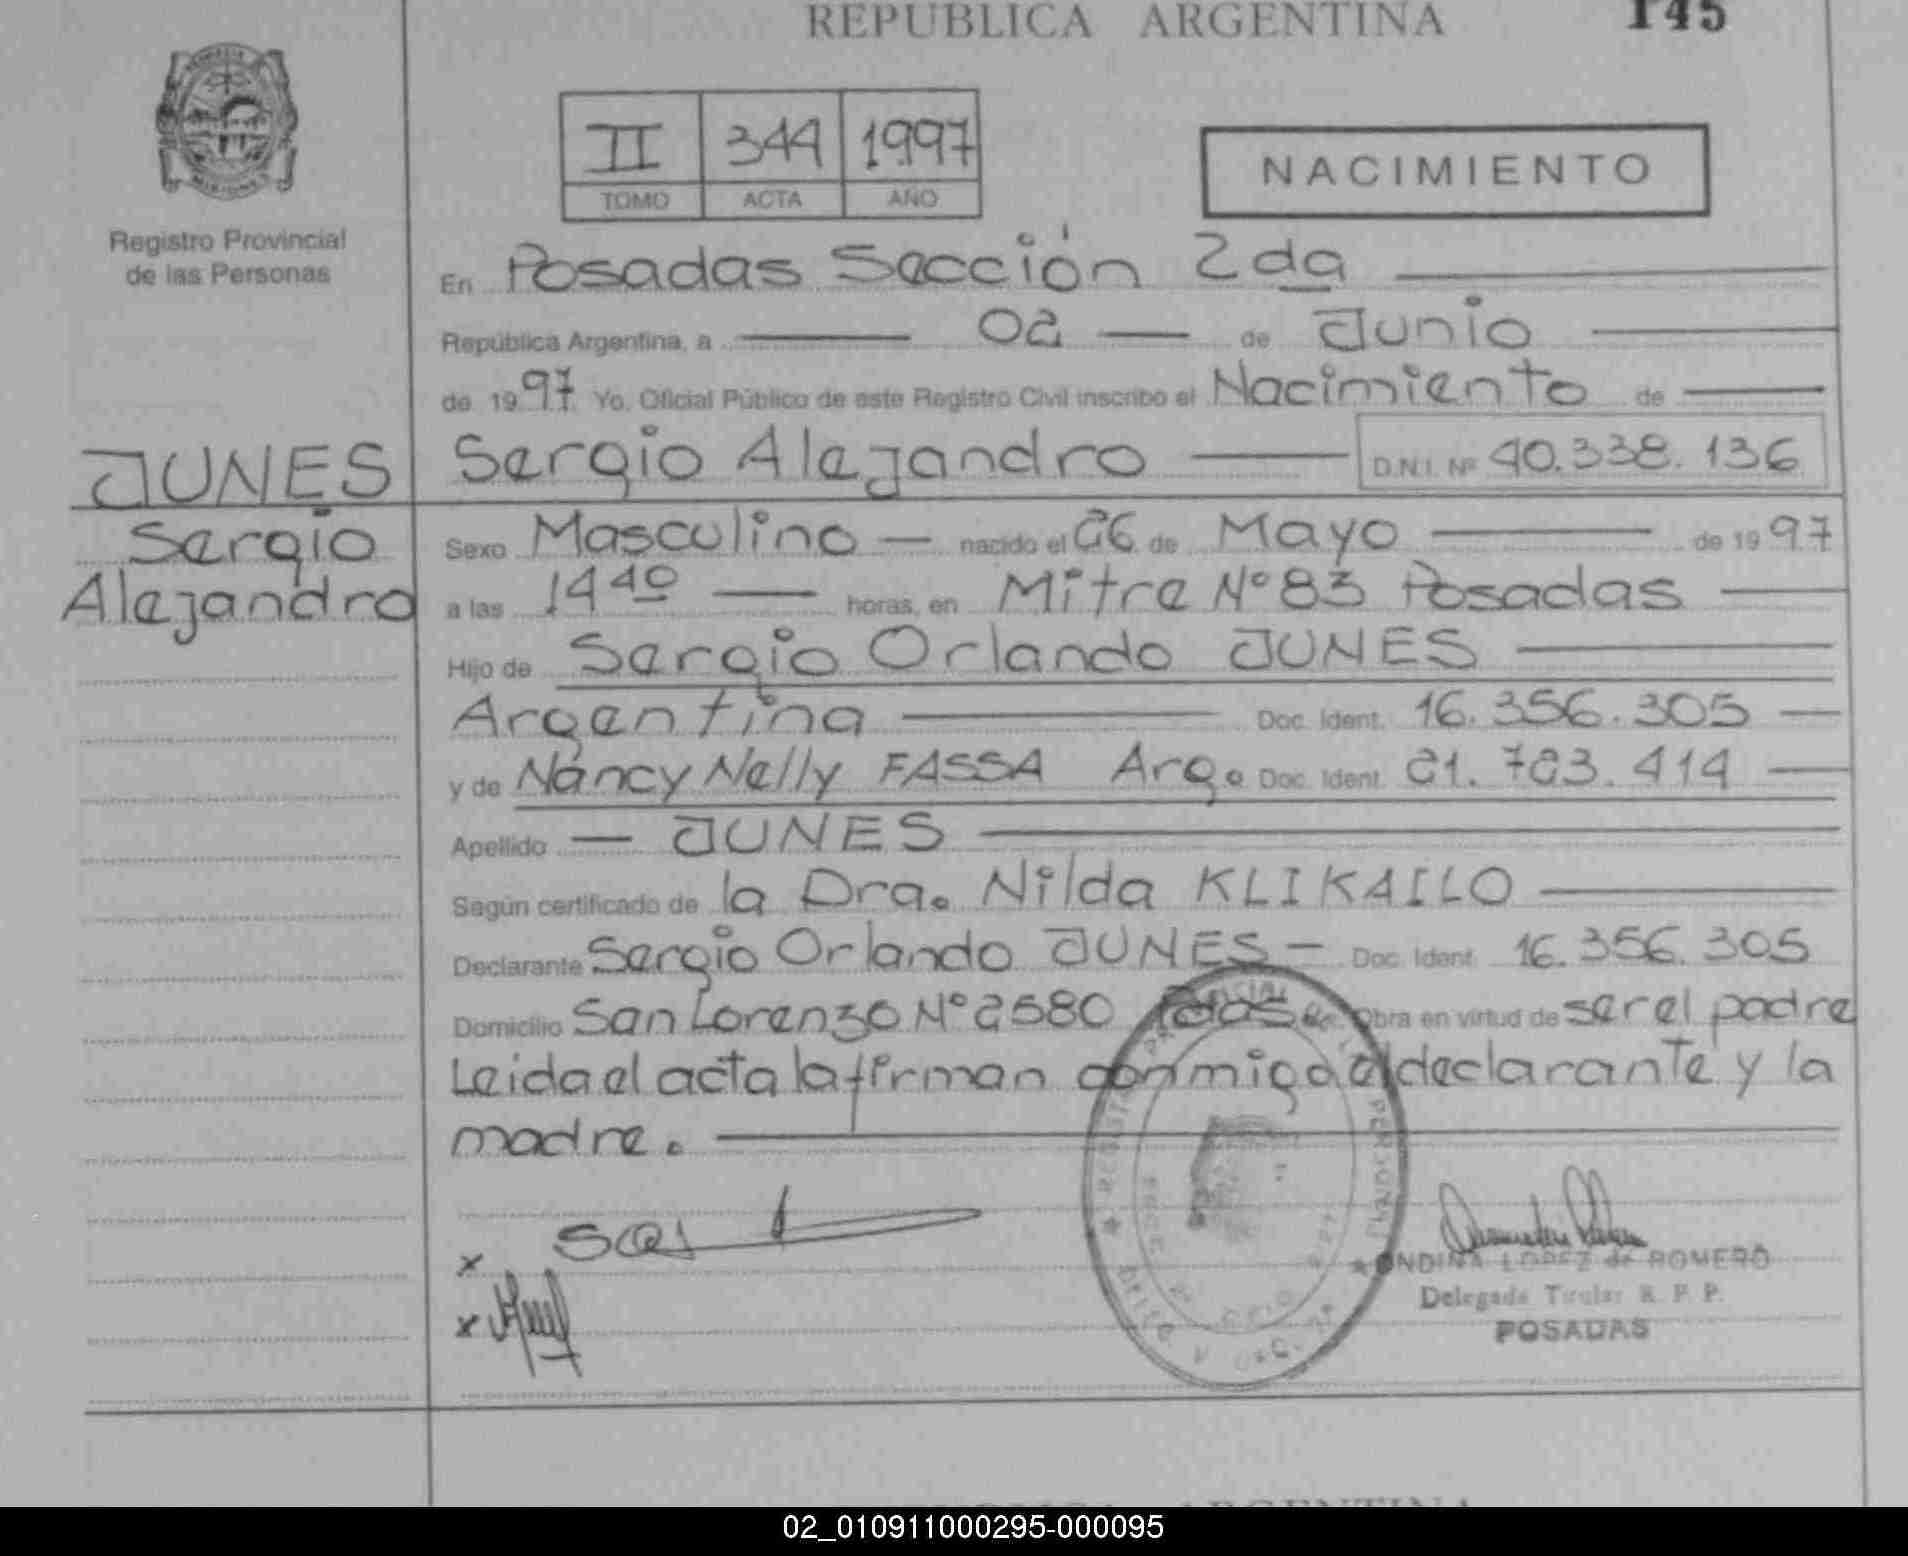 REPUBLICA ARGENTINA 145
II 344 1997
TOMO ACTA AÑO
NACIMIENTO
Registro Provincial
de las Personas
En Posadas Sección 2da
República Argentina, a 02 de Junio
de 1997 Yo, Oficial Público de este Registro Civil inscribo el Nacimiento de
JUNES
Sergio Alejandro D.N.I. Nº 40.338.136
Sergio
Alejandro
Sexo Masculino nacido el 26 de Mayo de 1997
a las 14 40 horas, en Mitre Nº 83 Posadas
Hijo de Sergio Orlando JUNES
Argentina Doc. Ident. 16.356.305
y de Nancy Nelly FASSA Arg. Doc. Ident. 21.723.414
Apellido JUNES
Según certificado de la Dra. Nilda KLIKAILO
Declarante Sergio Orlando JUNES Doc. Ident. 16.356.305
Domicilio San Lorenzo Nº 2580 Pdas. Obra en virtud de ser el padre
Leida el acta la firman conmigo el declarante y la
madre.
x
x
ONDINA LOPEZ de ROMERO
Delegada Titular R. P. P.
POSADAS
02_010911000295-000095